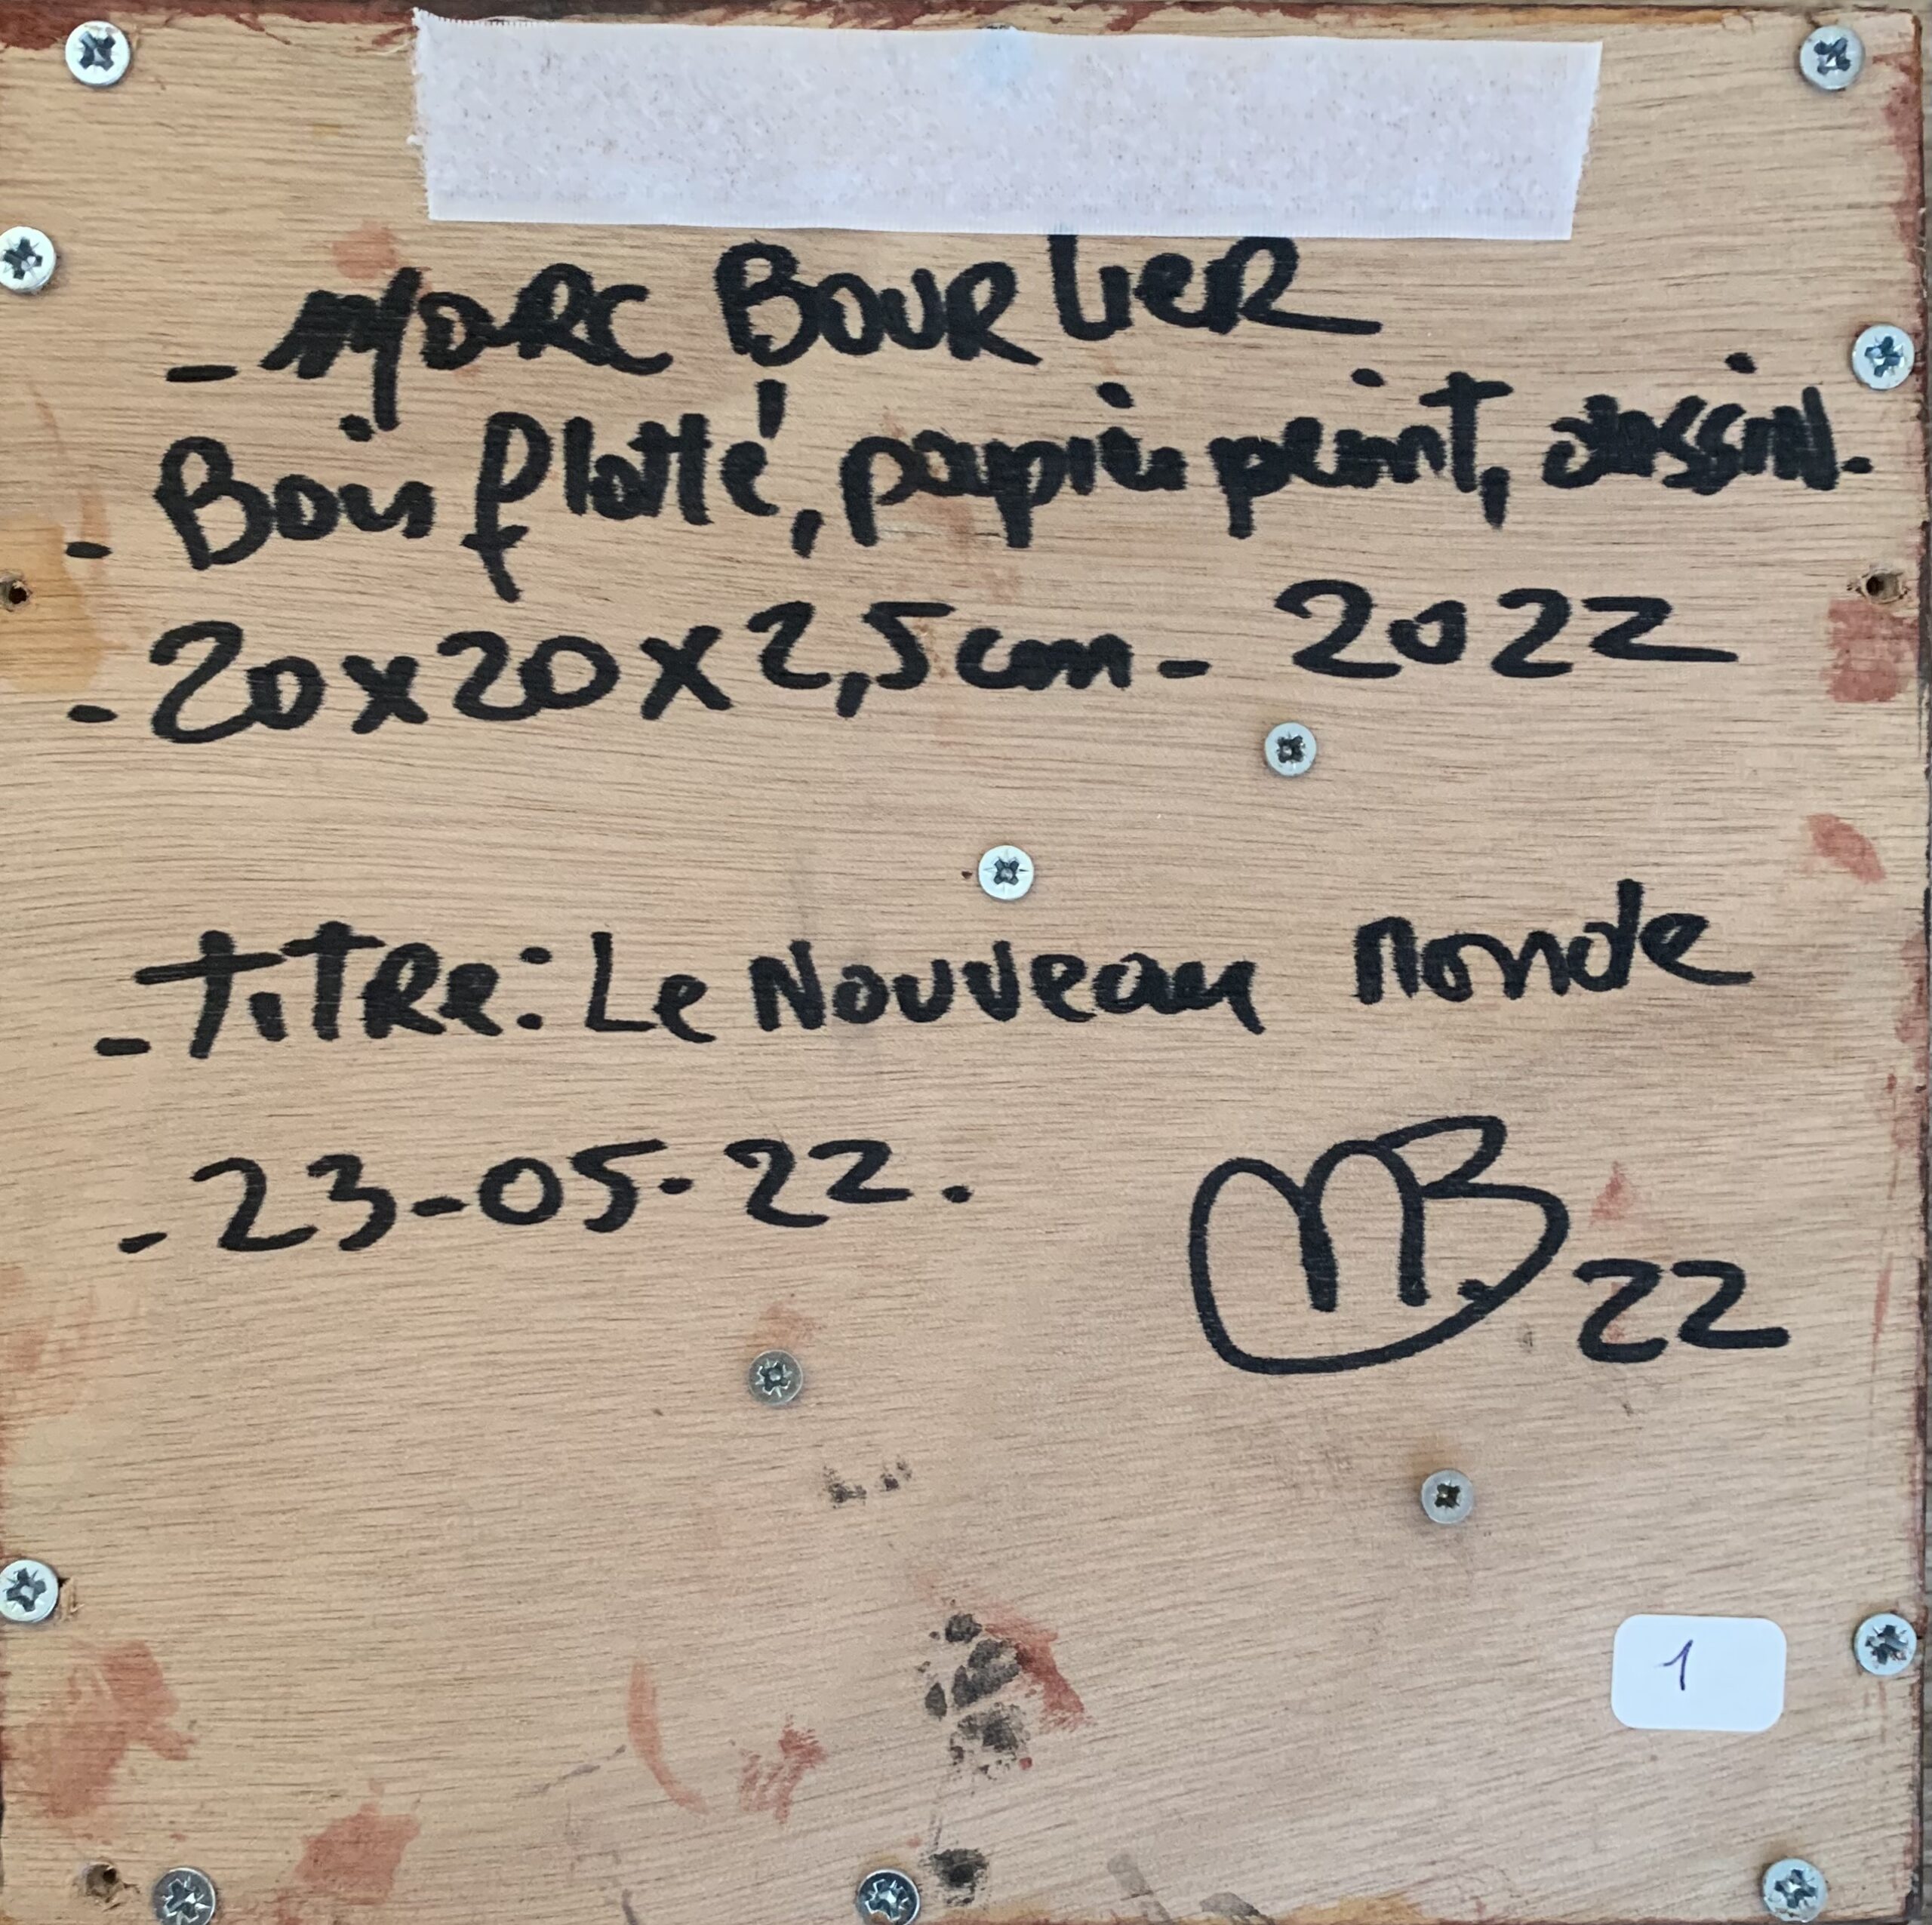 - MARC BOURLIER
- Bois flotté, papier peint, dessin.
- 20x20x2,5cm - 2022
- TITRE: Le Nouveau Monde
- 23-05-22.
MB 22
1